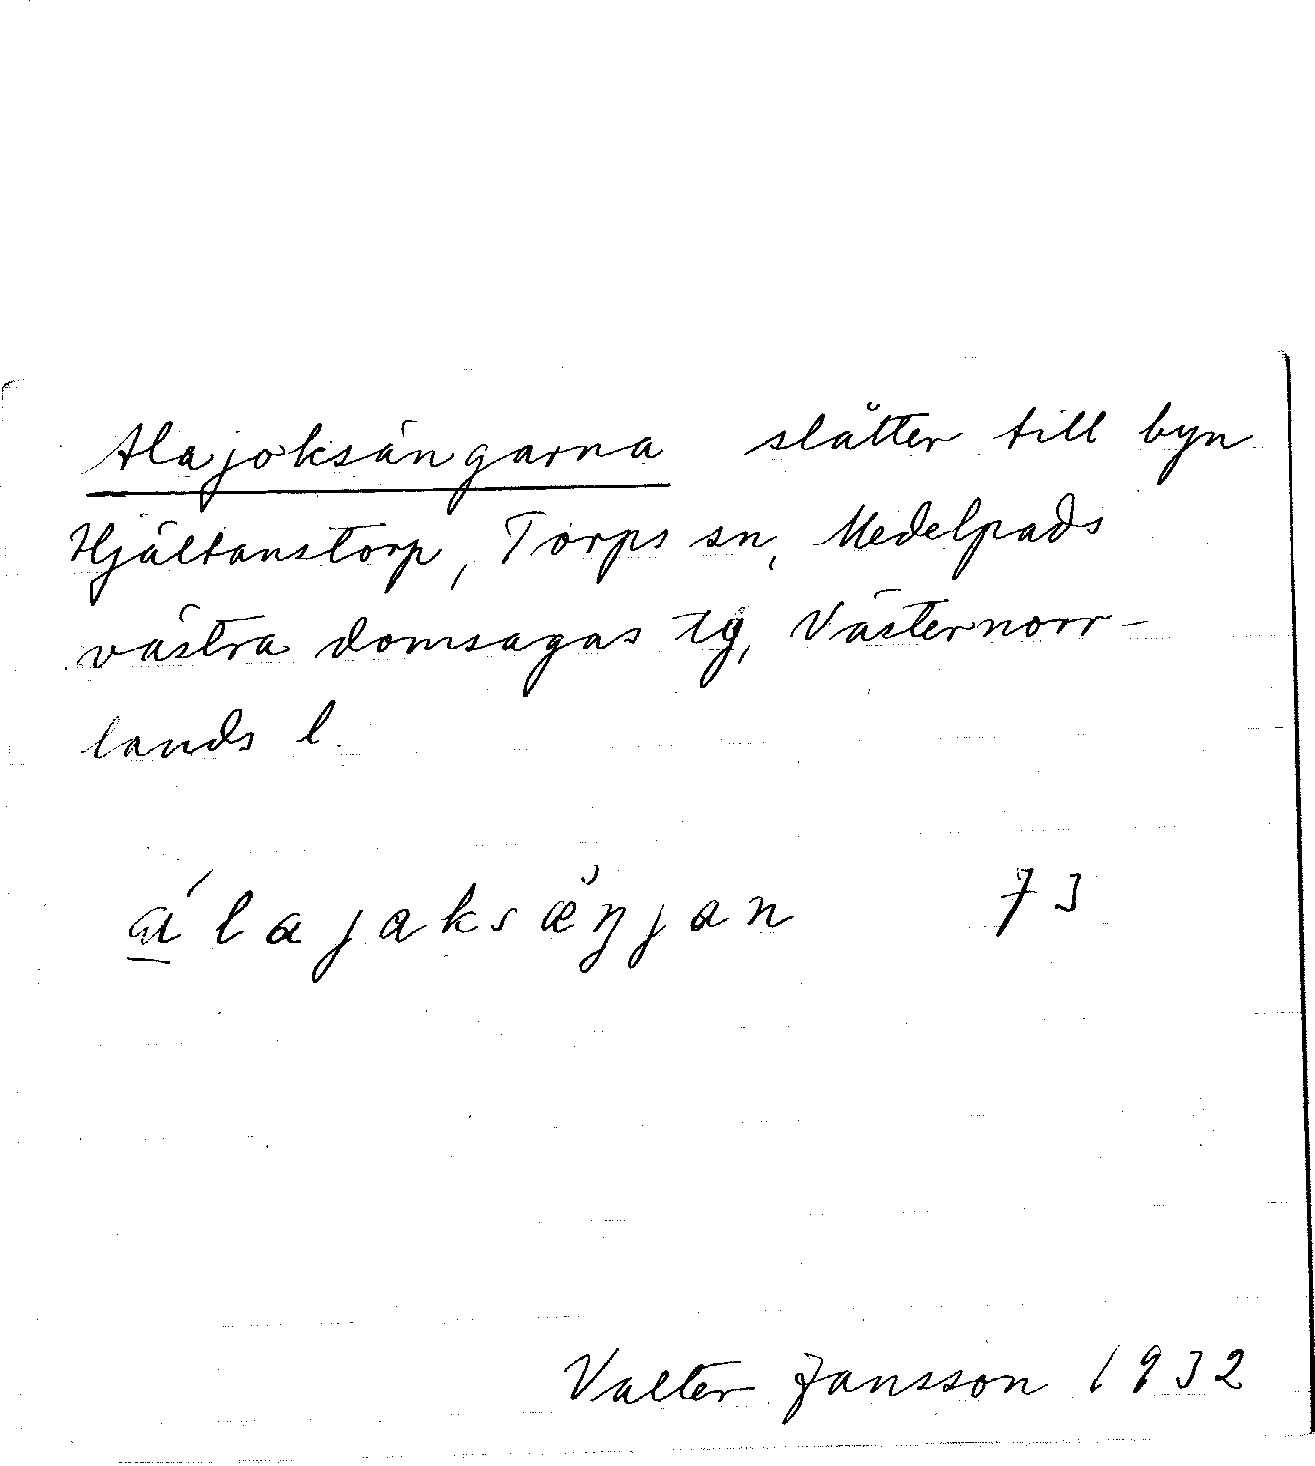 Alajoksängarna slåtter till byn
Hjältanstorp, Torps sn, Medelpads
västra domsagas tg, Västernorr-
lands l.
álajaksæ̆ŋjan 73
Valter Jansson 1932